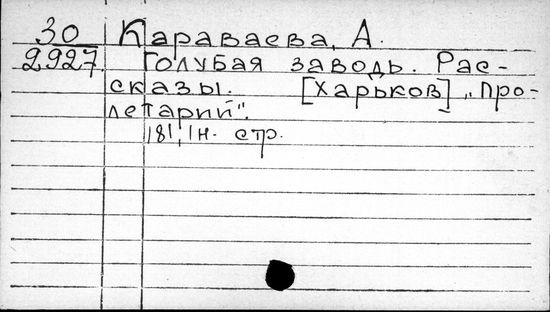 30 Караваева, А.
2927 Голубая заводь. Рас-
сказы. [Харьков] „Про-
летарий".
181, 1н. стр.